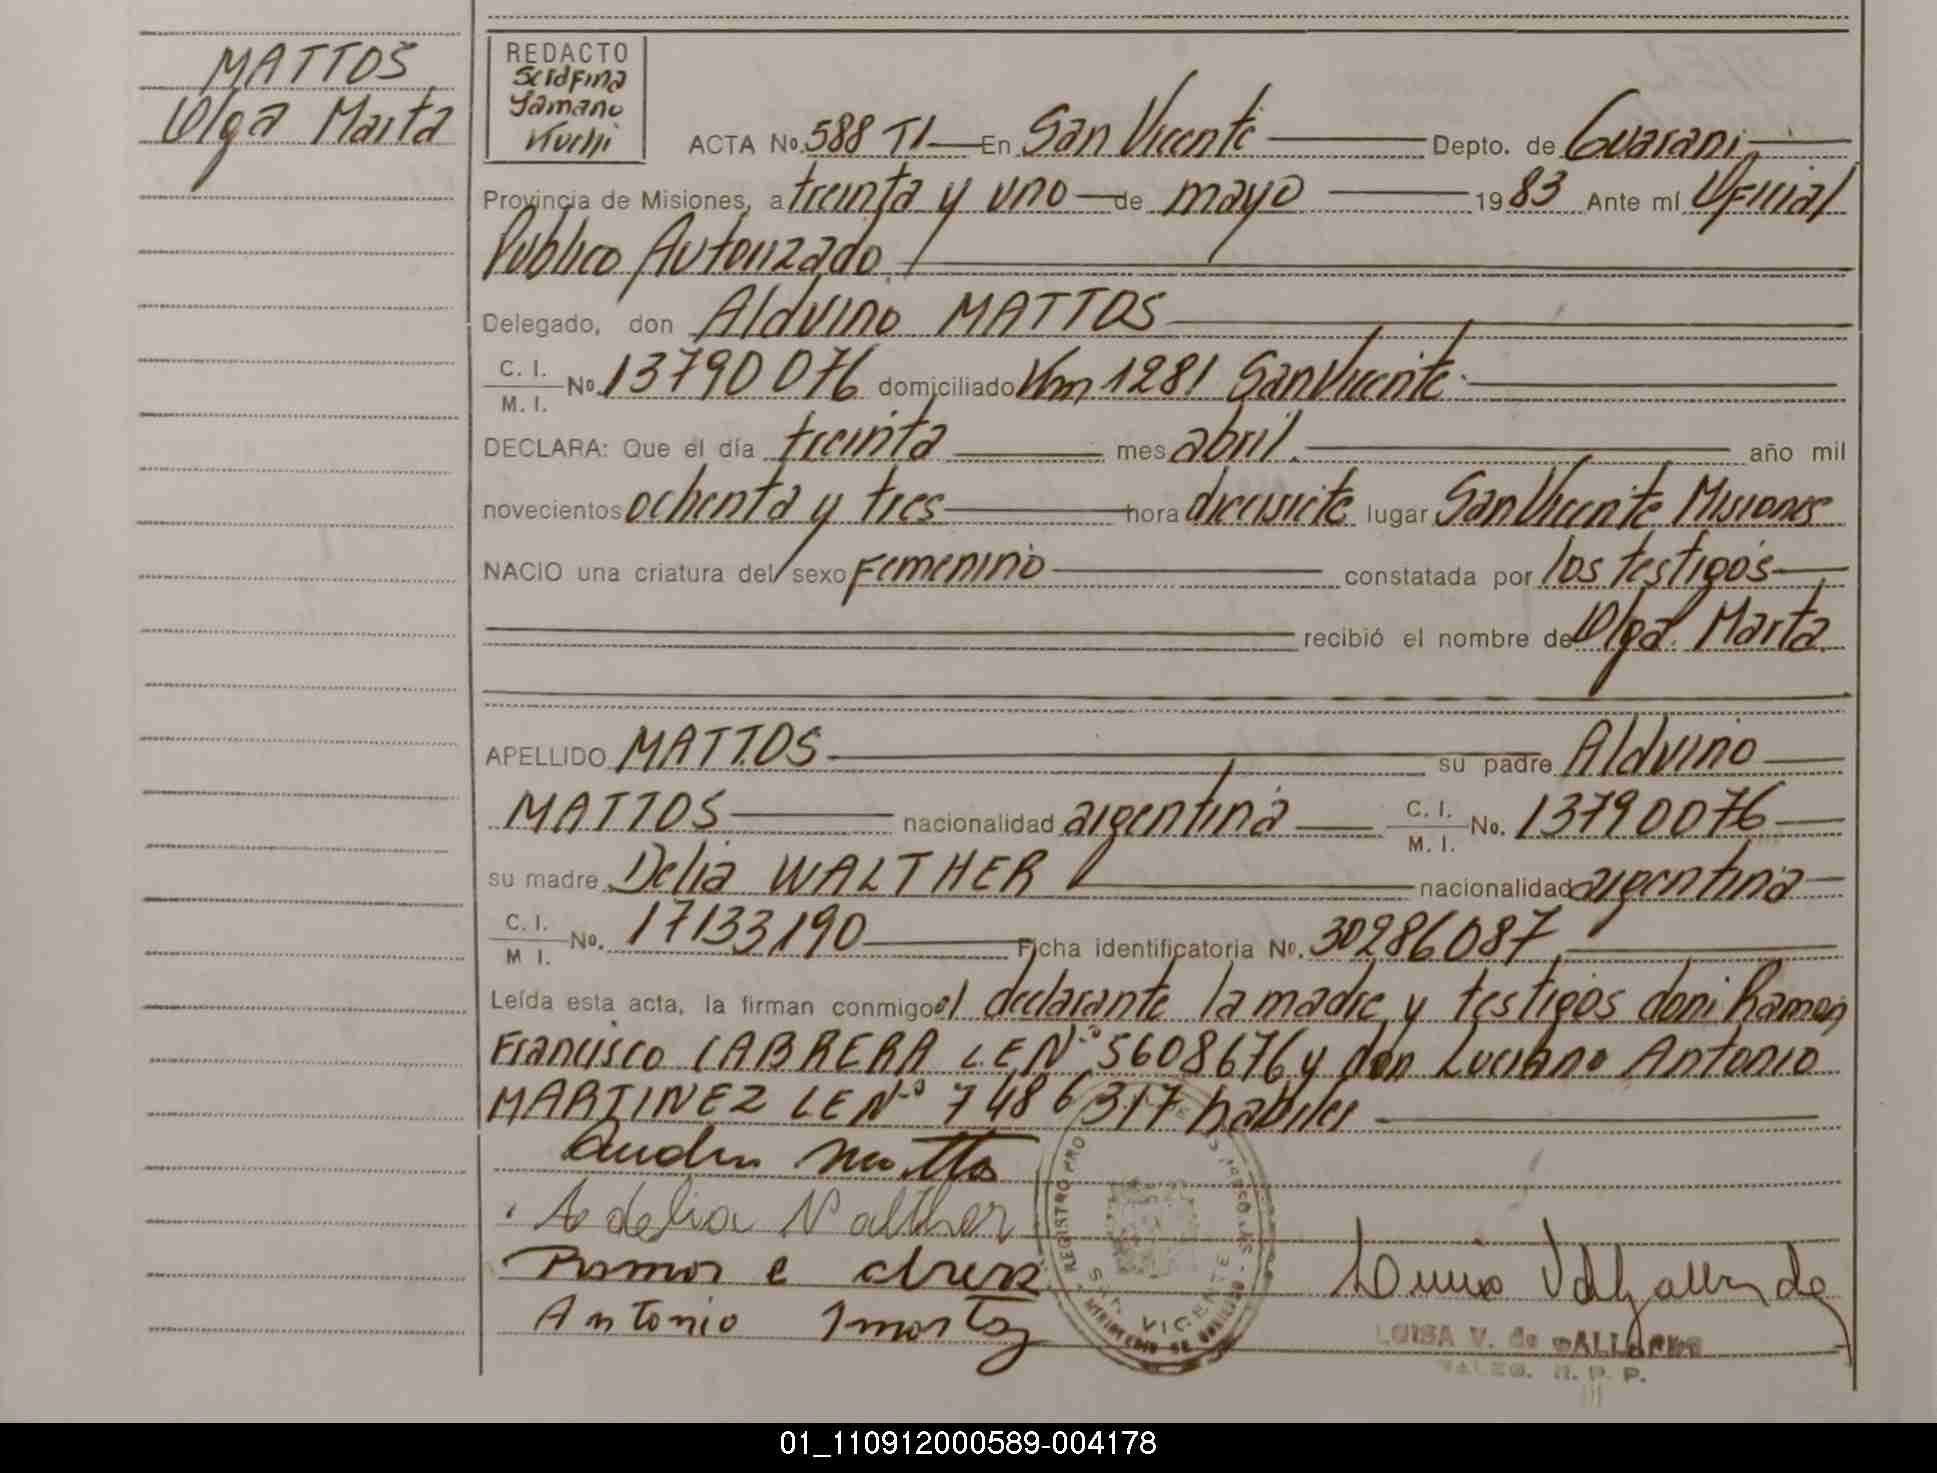 MATTOS
Olga Marta
REDACTO
Serafina
Yamano
Kuchi
ACTA No. 588 TI En San Vicente Depto. de Guarani
Provincia de Misiones, a treinta y uno de mayo 1983 Ante mí Oficial
Publico Autorizado
Delegado, don Alduino MATTOS
C. I.
M. I. No. 13790076 domiciliado Km 1281 San Vicente
DECLARA: Que el día treinta mes abril. año mil
novecientos ochenta y tres hora diecisiete lugar San Vicente Misiones
NACIO una criatura del sexo Femenino constatada por los testigos
recibió el nombre de Olga Marta
APELLIDO MATTOS su padre Alduino
MATTOS nacionalidad argentina C. I. M. I. No. 13790076
su madre Delia WALTHER nacionalidad argentina
C. I.
M I. No. 17133190 Ficha identificatoria No. 30286087
Leída esta acta, la firman conmigo el declarante la madre y testigos don: Ramon
Francisco CABRERA LE Nº 5608676 y don Luciano Antonio
MARTINEZ LE Nº 7486317 habiles
Adelia Walther
Antonio
REGISTRO PRO
SAN VICENTE
LUISA V. de
R. P. P.
01_110912000589-004178